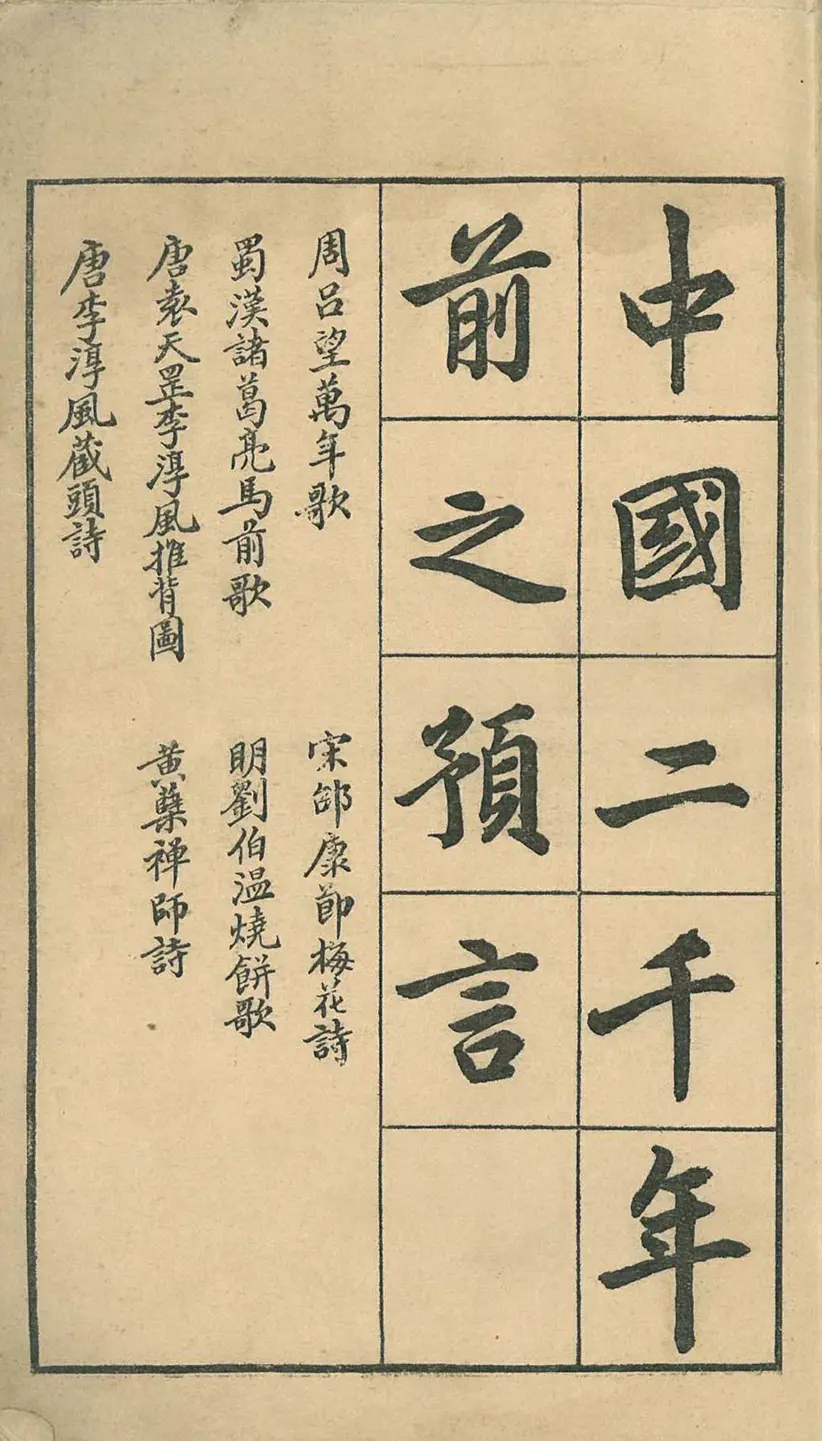 中國二千年
前之預言
周呂望萬年歌
宋邵康節梅花詩
蜀漢諸葛亮馬前歌
明劉伯温燒餅歌
唐袁天罡李淳風推背圖
黄蘗禅師詩
唐李淳風藏頭詩